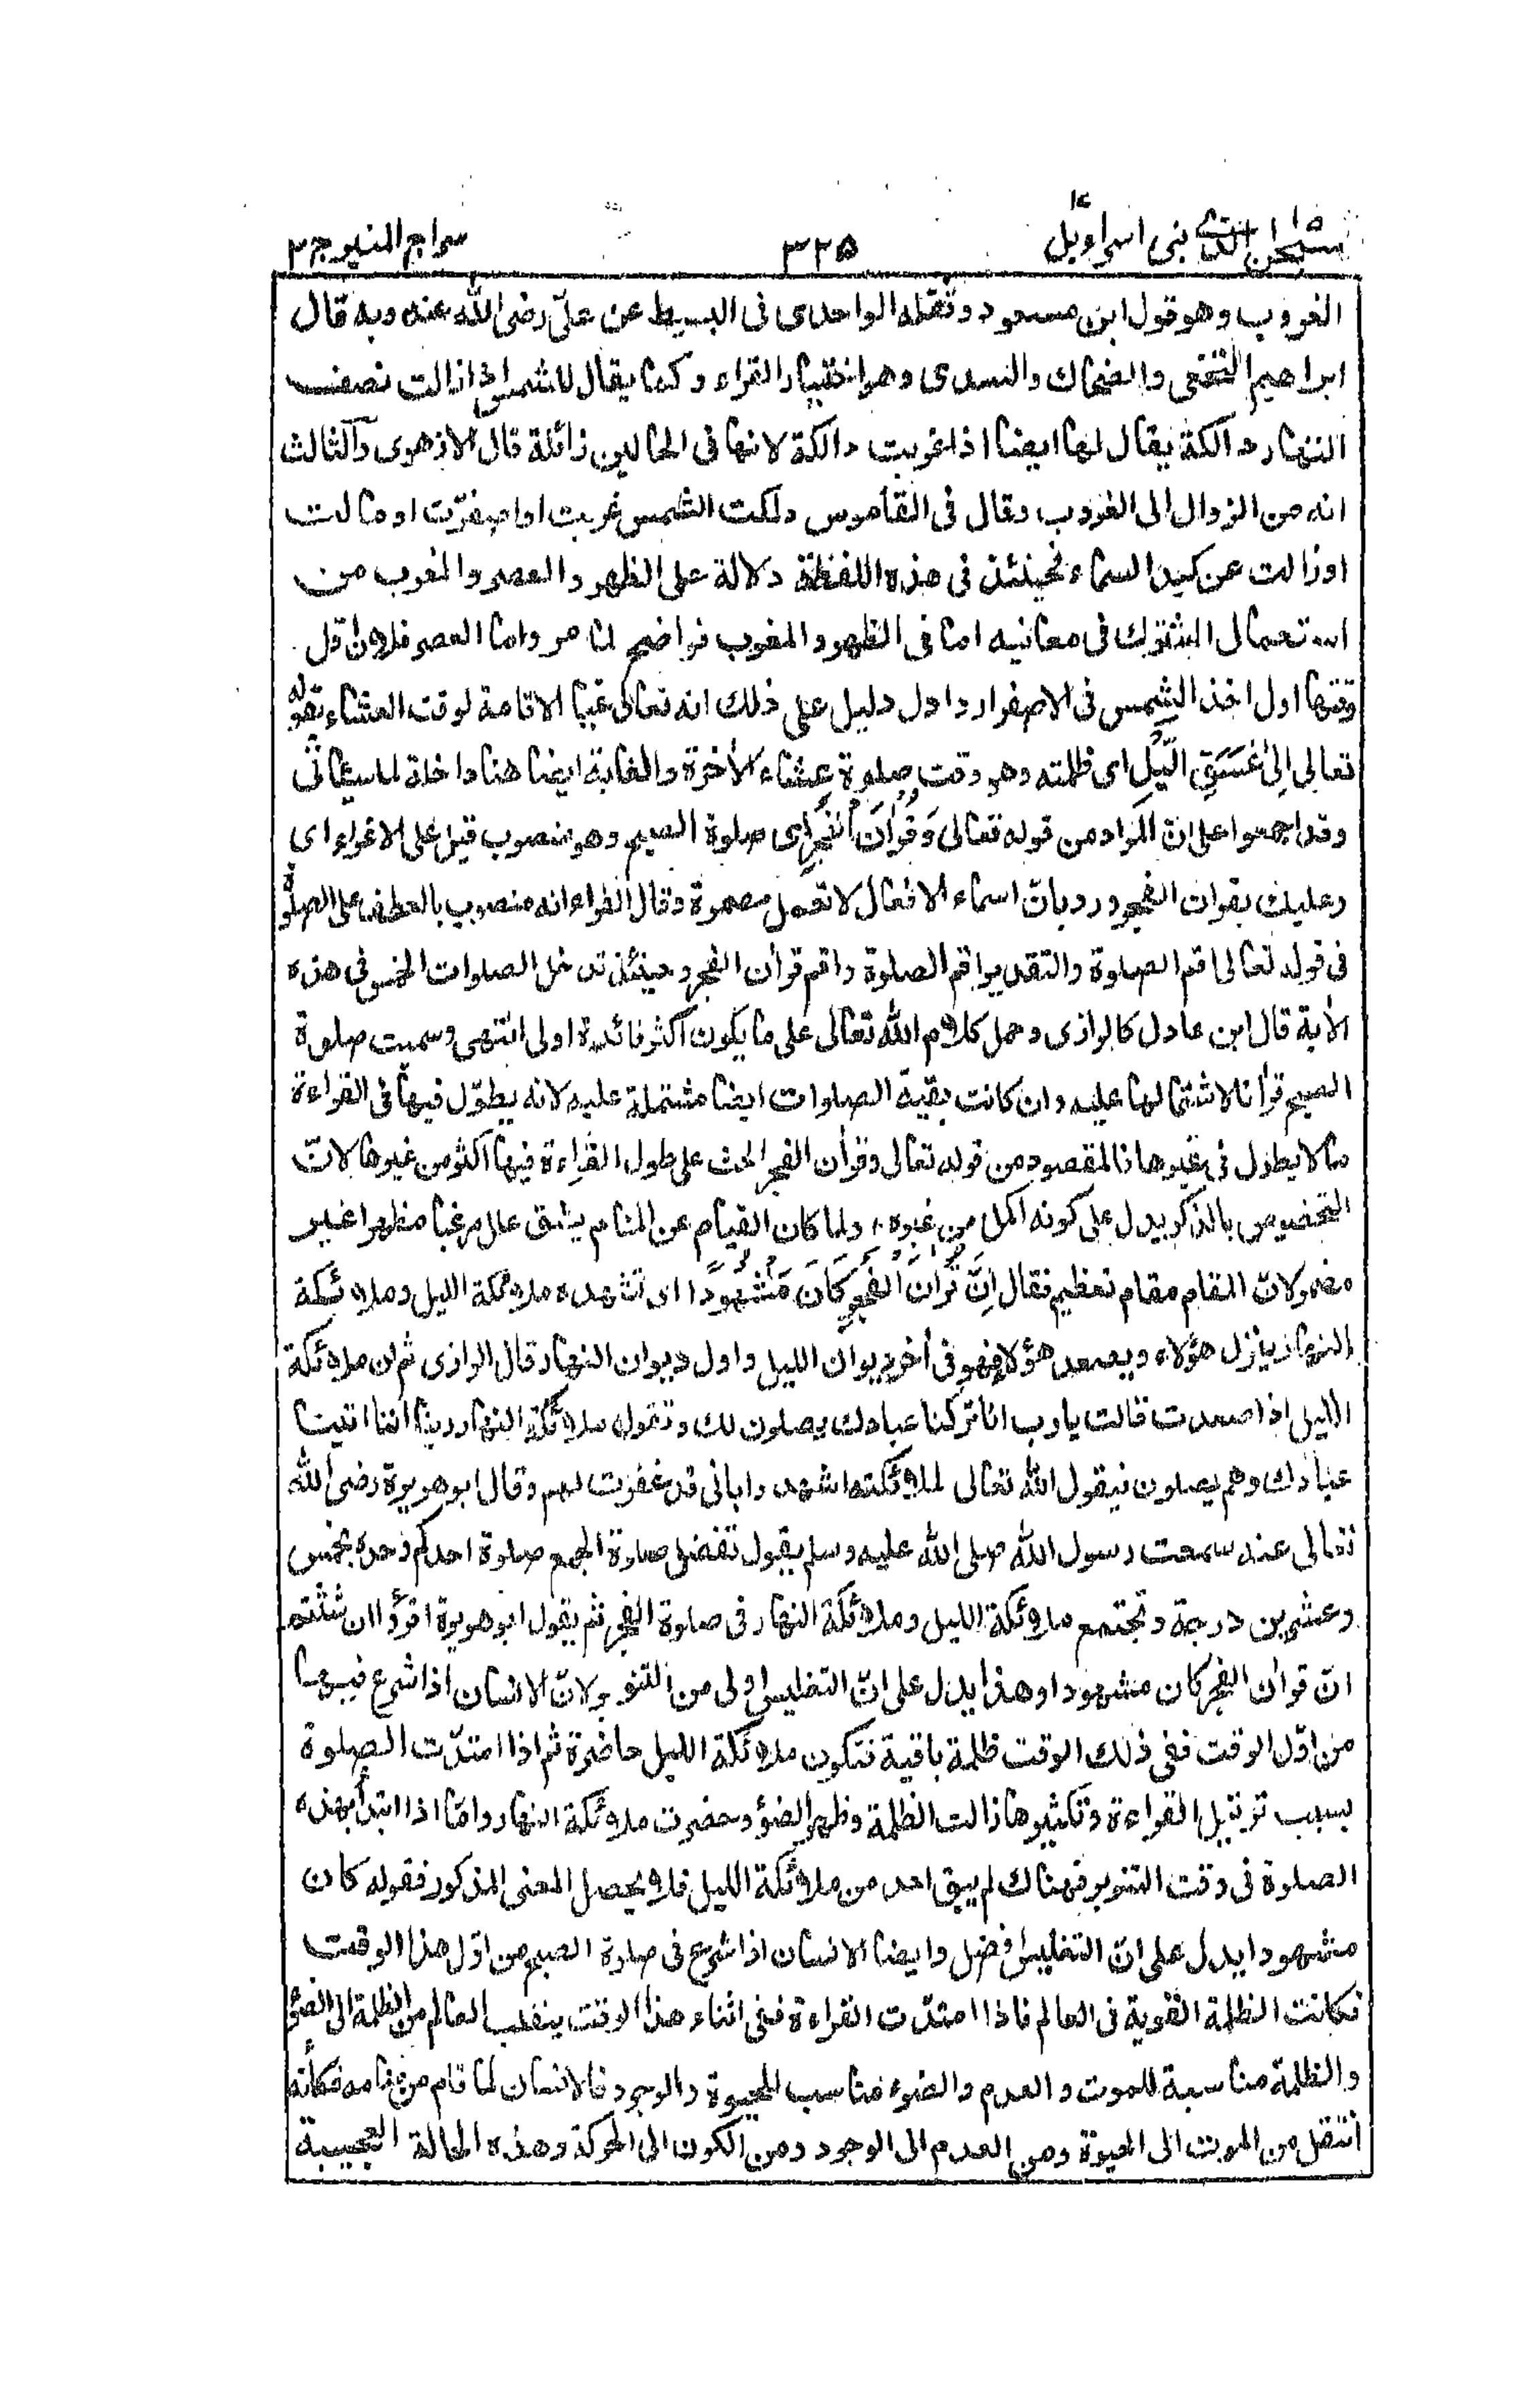 سبحن الذى ١٥ بنى اسراءيل ١٧ ٣٢٥ سراج المنير ج ٢
الغروب وهو قول ابن مسعود ونقله الواحدى فى البسيط عن علىّ رضى الله عنه وبه قال
ابراهيم النخعى والضحاك والسدى وهو اختيار القراء وكما يقال للشمس اذا زالت نصف
النهار دالكة يقال لها ايضا اذا غربت دالكة لانها فى الحالين زائلة قال الازهرى والثالث
انه من الزوال الى الغروب وقال فى القاموس دلكت الشمس غربت او اصفرّت او مالت
او زالت عن كبد السماء فحينئذ فى هذه اللفظة دلالة على الظهر والعصر والمغرب من
استعمال المشترك فى معانيه اما فى الظهر والمغرب فواضح لما مر واما العصر فلان اول
وقتها اول اخذ الشمس فى الاصفرار وادل دليل على ذلك انه تعالى غيا الاقامة لوقت العشاء بقوله
تعالى اِلىٰ غَسَقِ الَّيْلِ اى ظلمته وهو وقت صلوة عشاء الأخرة والغاية ايضا هنا داخلة لما سياتى
وقد اجمعوا على انّ المراد من قوله تعالى وَقُرْاٰنَ الْفَجْرِ اى صلوة الصبح وهو منصوب قيل على الاغراء اى
وعليك بقران الفجر ورد بانّ اسماء الافعال لا تعمل مضمرة وقال الفراء انه منصوب بالعطف على الصلوة
فى قوله تعالى اقم الصلوة والتقدير اقم الصلوة واقم قرأن الفجر وحينئذ تدخل الصلوات الخمس فى هذه
الأية قال ابن عادل كالرازى وحمل كلام الله تعالى على ما يكون اكثر فائدة اولى انتهى وسميت صلوة
الصبح قرأنا لاشتمالها عليه وان كانت بقيّة الصلوات ايضا مشتملة عليه لانه يطوّل فيها فى القراءة
ما لا يطول فى غيرها فالمقصود من قوله تعالى وقرأن الفجر الحث على طول القراءة فيها اكثر من غيرها لانّ
التخصيص بالذكر يدل على كونه اكمل من غيره ولما كان القيام عن المنام يشق علل مرغبا مظهرا غير
مضمر لانّ المقام مقام تعظيم فقال اِنَّ قُرْاٰنَ الْفَجْرِ كَانَ مَشْهُوْدًا اى تشهده ملائكة الليل وملائكة
النهار ينزل هؤلاء ويصعد هؤلاء فهو فى أخر ديوان الليل واول ديوان النهار قال الرازى ثم ان ملائكة
الليل اذا صعدت قالت يارب انا تركنا عبادك يصلون لك وتقول ملائكة النهار ربنا اننا اتينا
عبادك وهم يصلون فيقول الله تعالى لملائكته اشهدوا بانى قد غفرت لهم وقال ابو هريرة رضى الله
تعالى عنه سمعت رسول الله صلى الله عليه وسلم يقول تفضل صلوة الجمع صلوة احدكم وحده بخمس
وعشرين درجة وتجتمع ملائكة الليل وملائكة النهار فى صلوة الفجر ثم يقول ابو هريرة اقرؤا ان شئتم
انّ قرأن الفجر كان مشهودا وهذا يدل على انّ التغليس اولى من التنوير لانّ الانسان اذا شرع فيها
من اوّل الوقت ففى ذلك الوقت ظلمة باقية فتكون ملائكة الليل حاضرة ثم اذا امتدّت الصلوة
بسبب ترتيل القراءة وتكثيرها زالت الظلمة وظهر الضوء وحضرت ملائكة النهار وامّا اذا ابتدأ بهذه
الصلوة فى وقت التنوير فهناك لم يبق احد من ملائكة الليل فلا يحصل المعنى المذكور فقوله كان
مشهودا يدل على انّ التغليس افضل وايضا الانسان اذا شرع فى صلوة الصبح من اوّل هذا الوقت
فكانت الظلمة القوية فى العالم فاذا امتدّت القراءة ففى اثناء هذا الوقت ينقلب العالم من الظلمة الى الضوء
والظلمة مناسبة للموت والعدم والضوء مناسب للحيوة والوجود فالانسان لما قام من منامه فكأنه
انتقل من الموت الى الحيوة ومن العدم الى الوجود ومن السكون الى الحركة وهذه الحالة العجيبة